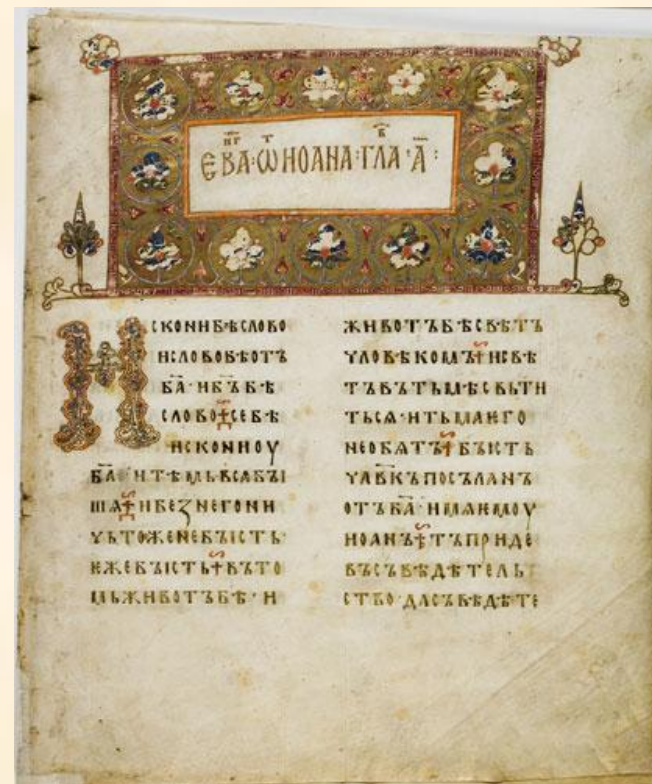 ЄВА҃НГ·Ѡ҃ТИОАНА·ГЛА҃В·А҃:
ИСКОНИБѢСЛОВО
ИСЛОВОБѢОТЪ
БА҃·ИБЪ҃БѢ
СЛОВО☩СЕБѢ
ИСКОНИОУ
БА҃·ИТѢМЬВСꙖБꙐ
ШѦ☩ИБЕЗНЕГОНИ
ЧЬТОЖЕНЕБꙐСТЬ·
ѤЖЕБꙐСТЬ☩ВЪТО
МЬЖИВОТЪБѢ·И
ЖИВОТЪБѢСВѢТЪ
ЧЛОВѢКОМЪ☩ИСВѢ
ТЪВЪТЬМѢСВЬТИ
ТЬСѦ·ИТЬМАѤГО
НЕОБѦТЪ☩БꙐСТЬ
ЧЛВ҃КЪПОСЪЛАНЪ
ОТЪБА҃·ИМѦѤМОУ
ИОАНЪ☩ТЪПРИДЕ
ВЪСЪВѢДѢТЕЛЬ
СТВО·ДАСЪВѢДѢТЕ